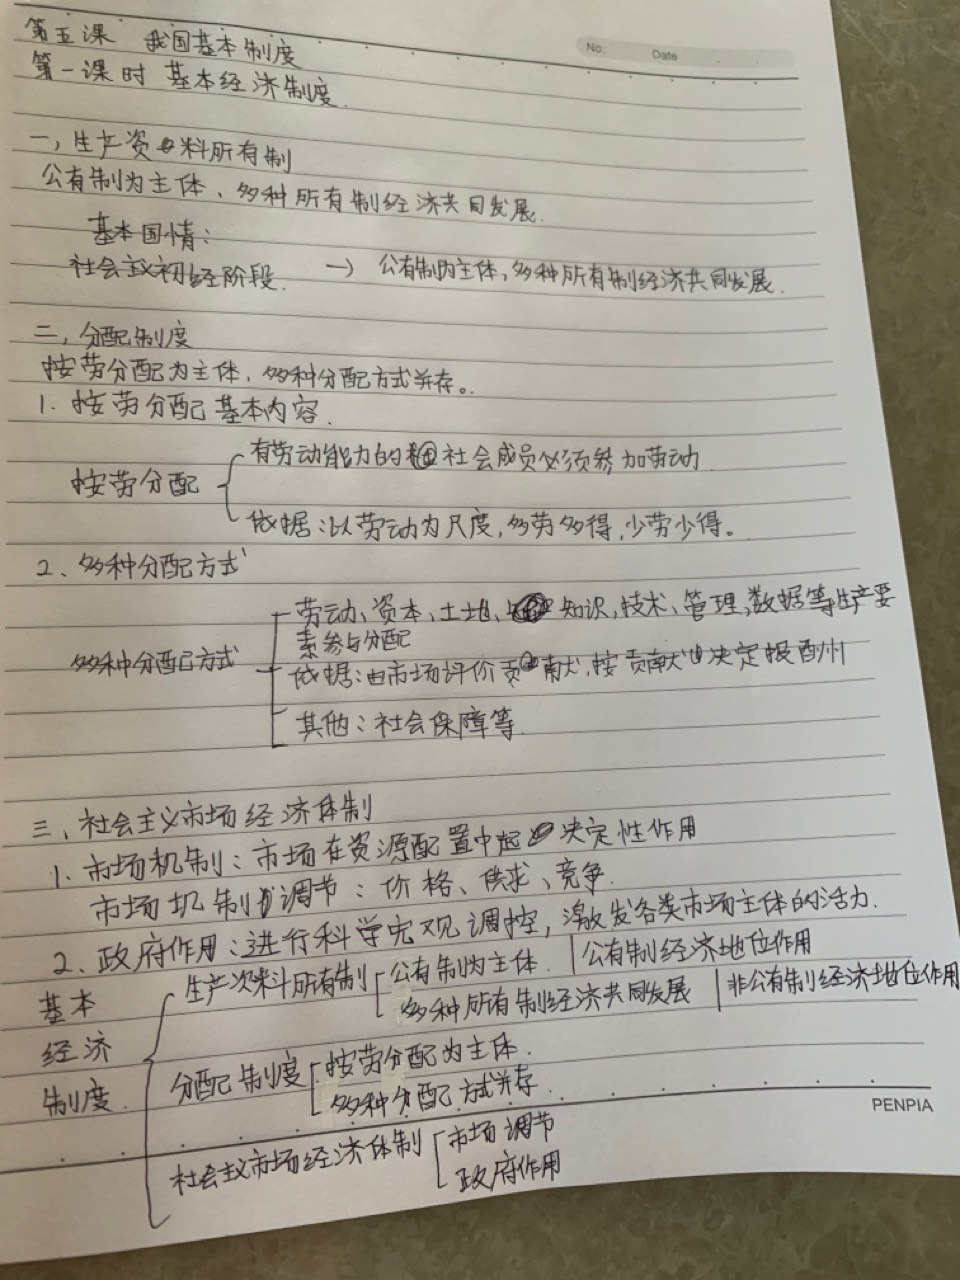 No. Date
第五课 我国基本制度
第一课时 基本经济制度
一,生产资料所有制
公有制为主体、多种所有制经济共同发展.
基本国情:
社会主义初经阶段. → 公有制为主体,多种所有制经济共同发展.
二,分配制度
按劳分配为主体,多种分配方式并存。
1. 按劳分配基本内容.
有劳动能力的社会成员必须参加劳动
按劳分配
依据:以劳动为尺度,多劳多得,少劳少得。
2、多种分配方式
劳动、资本、土地、知识,技术、管理,数据等生产要
素参与分配
多种分配方式
依据:由市场评价贡献,按贡献决定报酬
其他:社会保障等.
三、社会主义市场经济体制
1. 市场机制:市场在资源配置中起决定性作用
市场机制调节:价格、供求、竞争.
2、政府作用:进行科学宏观调控,激发各类市场主体的活力.
基本
经济
制度.
生产资料所有制 公有制为主体. 公有制经济地位作用
多种所有制经济共同发展 非公有制经济地位作用
分配制度 按劳分配为主体.
多种分配方式并存.
社会主义市场经济体制 市场调节
政府作用
PENPIA